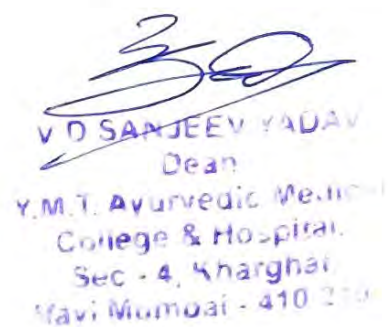 V D SANJEEV YADAV
Dean
Y.M.T. Ayurvedic Medic
College & Hospital.
Sec - 4, Kharghar
Navi Mumbai - 410 210